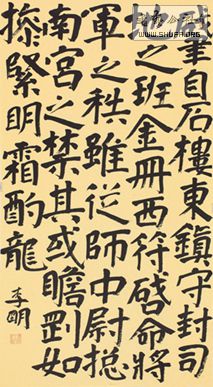 自居樓東鎮守封司
地之班金冊西符啓命將
軍之秩雖従師中尉揔
南宮之禁其或瞻罰如
摻緊明霜酌龍
李明
WWW.SHUFA.ORG